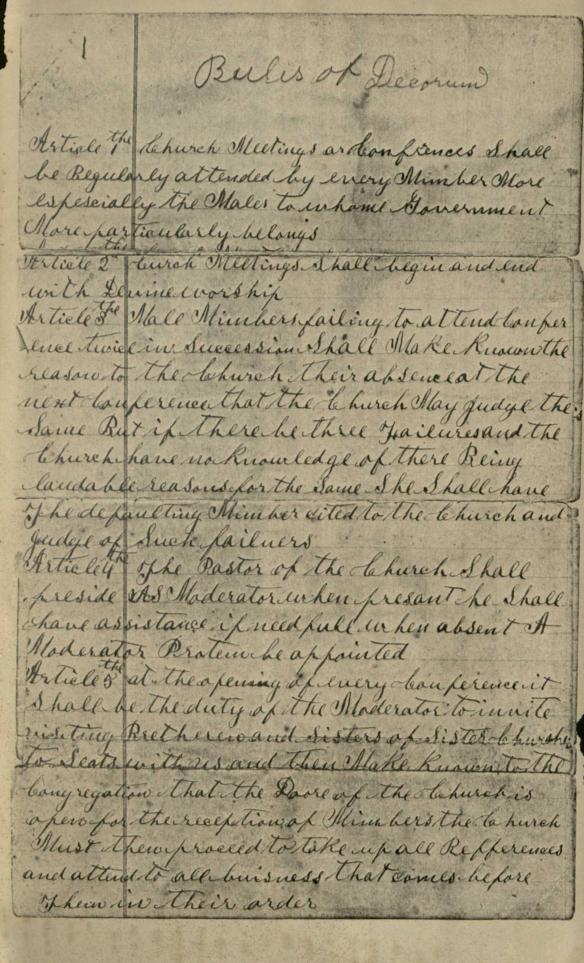 1
Rules of Decorum
Article 1the Church Meetings or Confrences Shall
be Regularly attended by every Mimber More
espescially the Males to whome Government
More particularly belongs
Article 2the Church Meetings Shall begin and end
with Devine worship
Article 3the Male Mimbers failing to attend Confer
ence twice in Succession Shall Make Known the
reason to the Church their absence at the
next Conference that the Church May Judge the
Same But if there be three Failures and the
Church have no Knowledge of there Being
laudable reasons for the Same She Shall have
The defaulting Mimber cited to the Church and
Judge of Such failuers
Article 4the The Pastor of the Church Shall
preside AS Moderator when presant he Shall
have assistance if need full when absent A
Moderator Protem be appointed
Article 5the at the opening of every Conference it
Shall be the duty of the Moderator to invite
visiting Bretheren and Sisters of Sister Churchs
to Seats with us and then Make Known to the
Congregation that the Doore of the Church is
open for the reception of Mimbers the Church
Must then proceed to take up all Refferences
and attend to all buisness that comes before
Them in their order